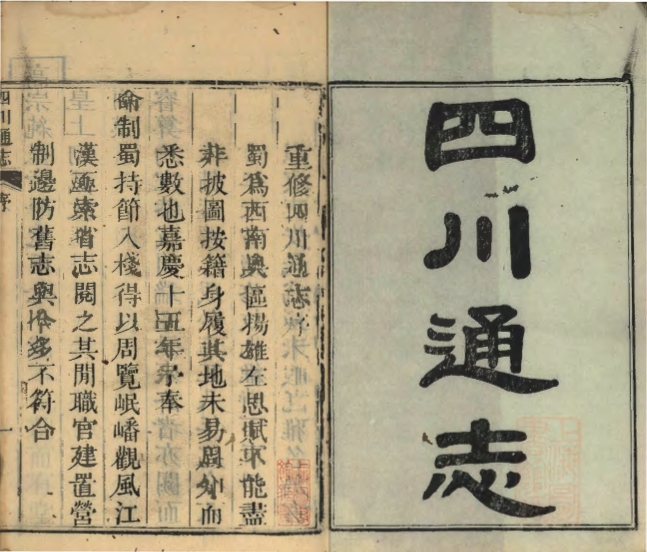 四川通志
重修四川通志序
蜀為西南奧區楊雄左思賦不能盡
非披圖按籍身履其地未易周知而
悉數也嘉慶十五年予奉
命制蜀持節入棧得以周覽岷嶓觀風江
漢亟索省志閱之其閒職官建置營
制邊防舊志與今多不符合
四川通志
序
一